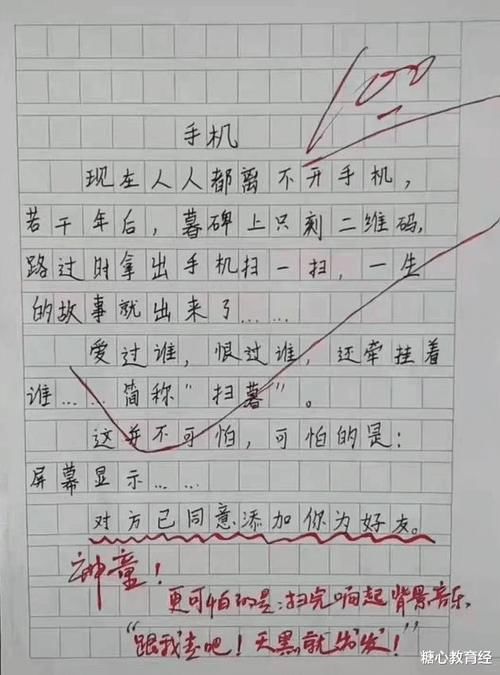 100
手机
现在人人都离不开手机，
若干年后，暮碑上只刻二维码，
路过时拿出手机扫一扫，一生
的故事就出来了……
爱过谁，恨过谁，还牵挂着
谁……简称“扫暮”。
这并不可怕，可怕的是：
屏幕显示……
对方已同意添加你为好友。
神童！
更可怕的是：扫完响起背景音乐，
“跟我去吧！天黑就出发！”
糖心教育经